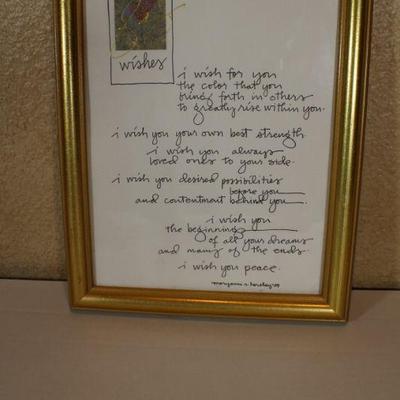 wishes
i wish for you
the color that you
bring forth in others
to greatly rise within you.
i wish you your own best strength.
i wish you always
loved ones to your side.
i wish you desired possibilities
before you
and contentment behind you
i wish you
the beginning
of all your dreams
and many of the ends.
i wish you peace.